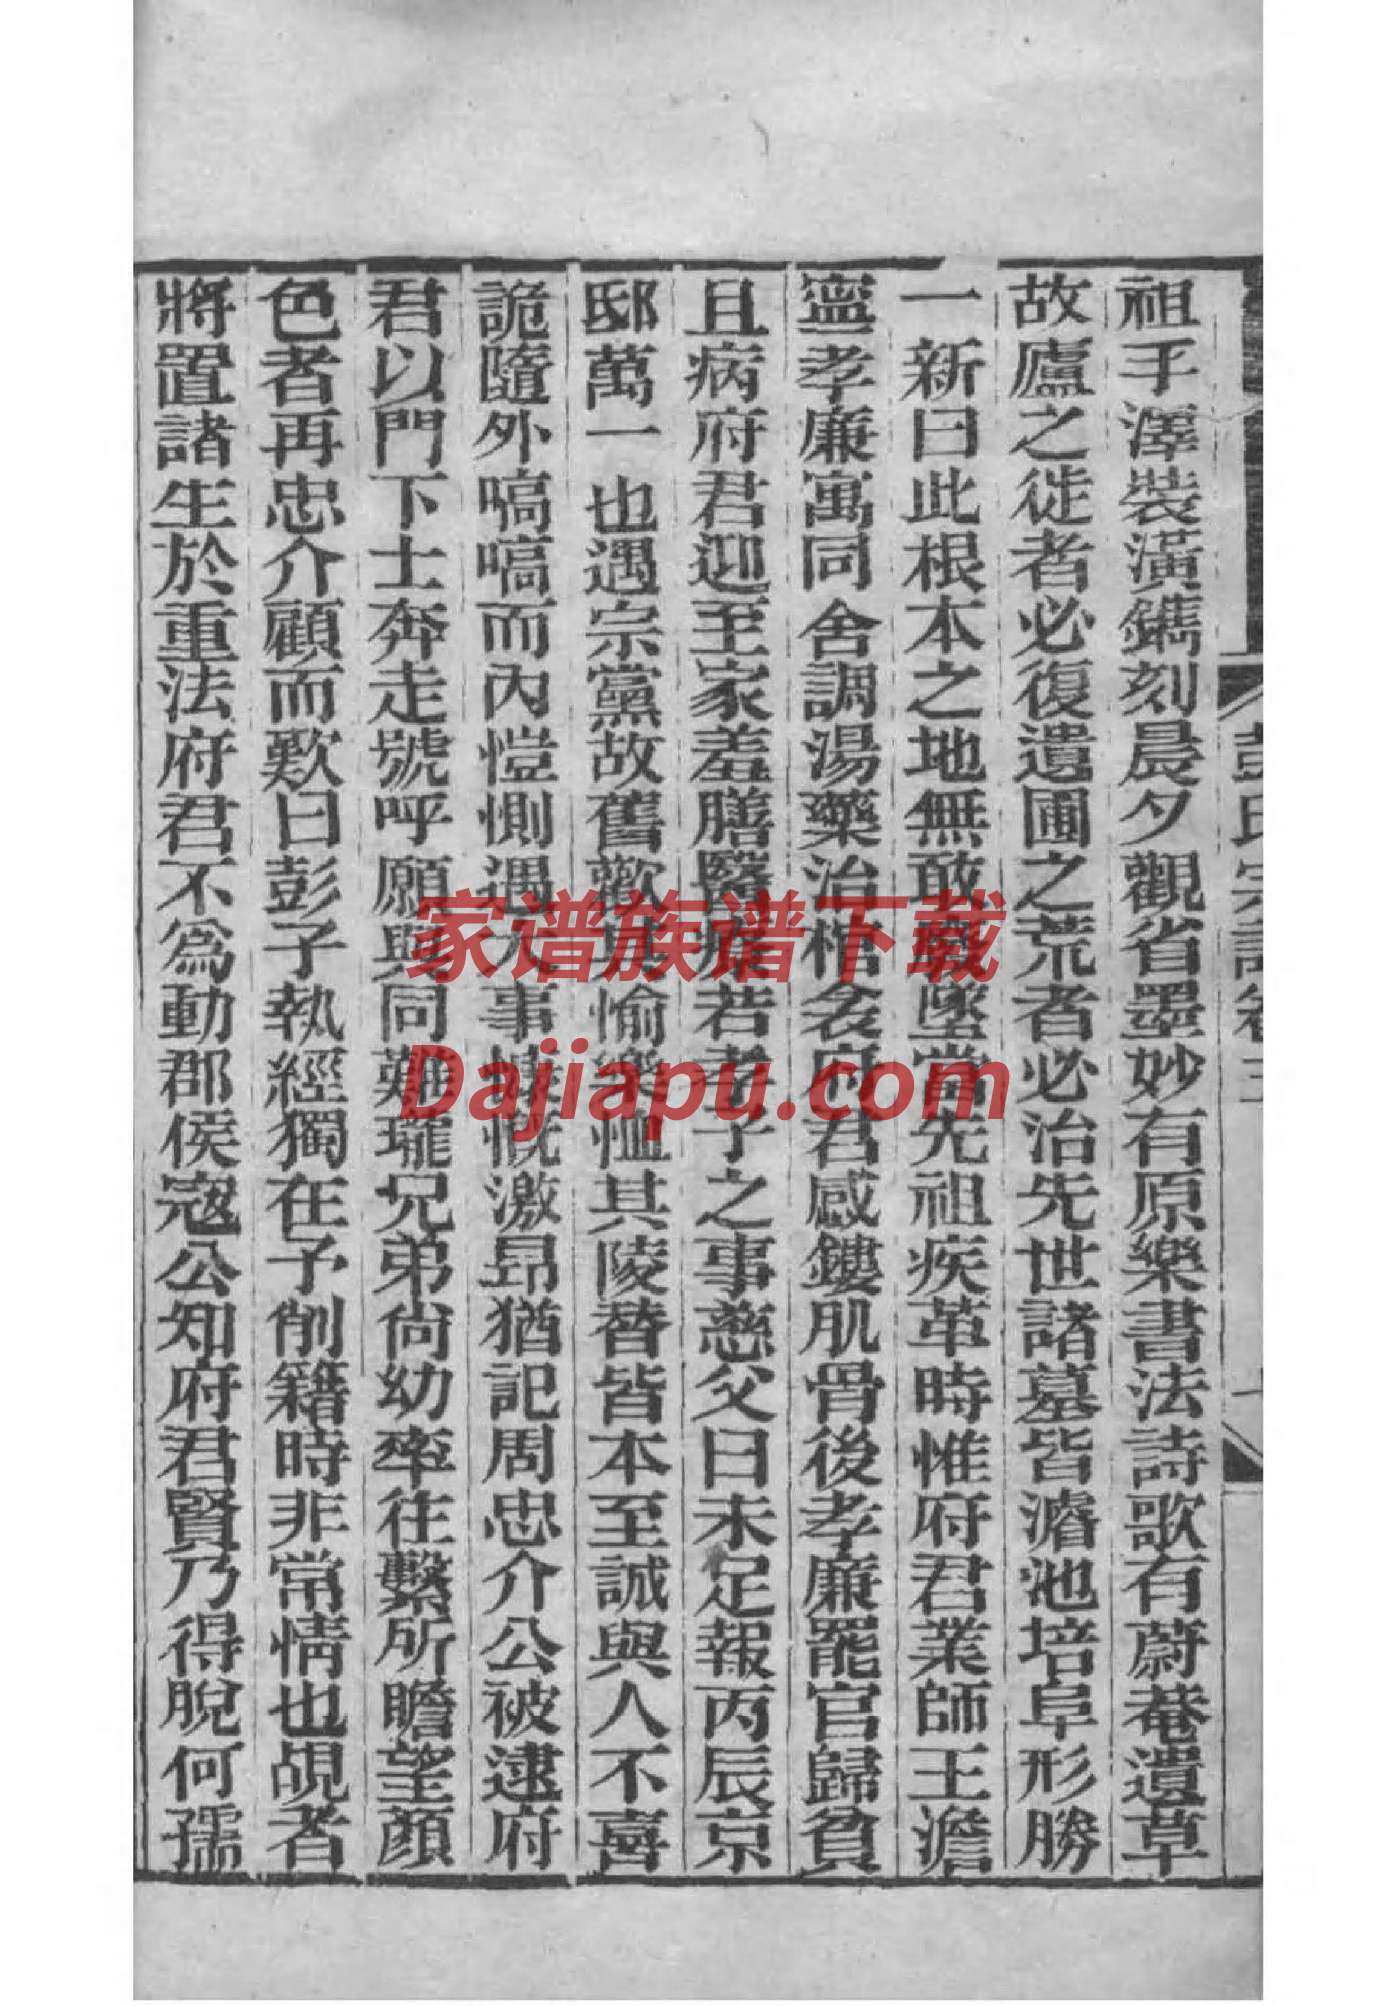 祖手澤裝潢鐫刻晨夕觀省墨妙有原樂書法詩歌有蔚菴遺草
故廬之徙者必復遺圃之荒者必治先世諸墓皆濬池培阜形勝
一新曰此根本之地無敢墜當先祖疾革時惟府君業師王澹
寧孝廉寓同舍調湯藥治棺衾府君感鏤肌骨後孝廉罷官歸貧
且病府君迎至家羞膳醫藥若孝子之事慈父曰未足報丙辰京
邸萬一也遇宗黨故舊歡其愉樂恤其陵替皆本至誠與人不喜
詭隨外嗃嗃而內愷惻遇大事慷慨激昂猶記周忠介公被逮府
君以門下士奔走號呼願與同難瓏兄弟尙幼率往繫所瞻望顏
色者再忠介顧而歎曰彭子執經獨在予削籍時非常情也覘者
將置諸生於重法府君不爲動郡侯寇公知府君賢乃得脫何孺
彭氏宗譜卷三
家谱族谱下载
Dajiapu.com